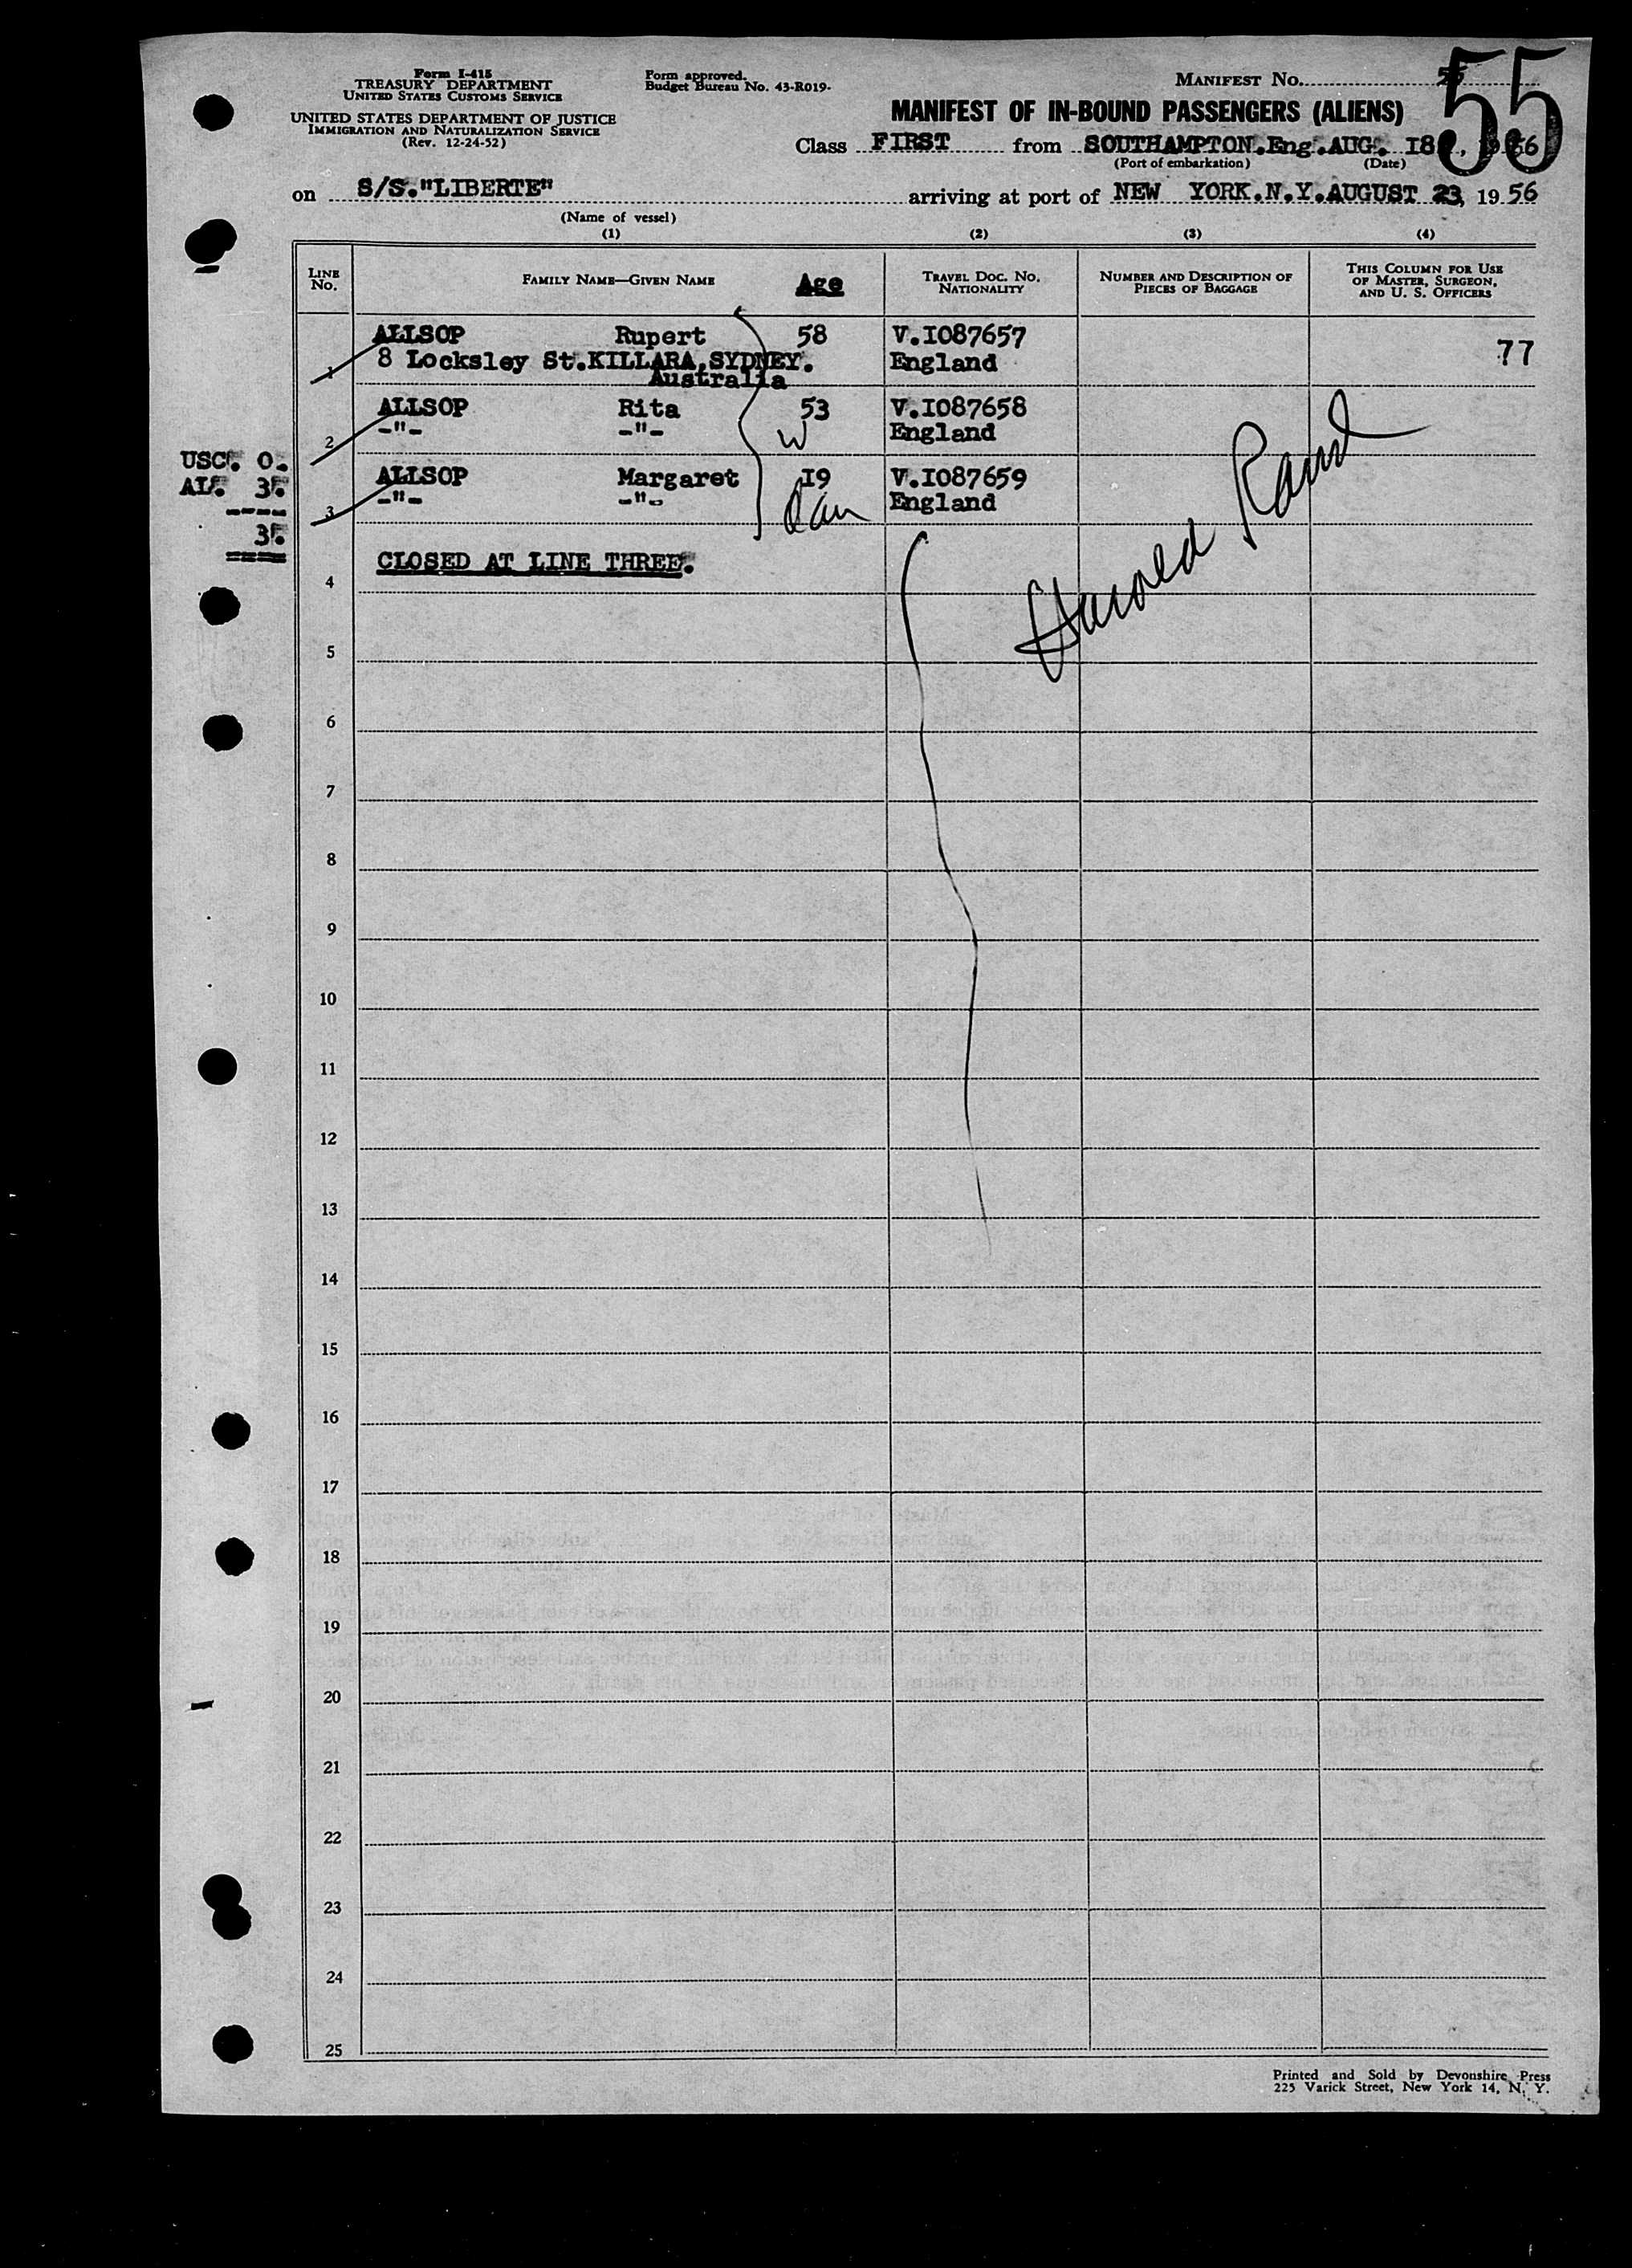 Form I-415
TREASURY DEPARTMENT
UNITED STATES CUSTOMS SERVICE
UNITED STATES DEPARTMENT OF JUSTICE
IMMIGRATION AND NATURALIZATION SERVICE
(Rev. 12-24-52)
Form approved.
Budget Bureau No. 43-R019.
MANIFEST No. 55
MANIFEST OF IN-BOUND PASSENGERS (ALIENS)
Class FIRST from SOUTHAMPTON.Eng.AUG. 18
(Port of embarkation) (Date)
on S/S."LIBERTE" arriving at port of NEW YORK.N.Y.AUGUST 23, 1956
(Name of vessel)
(1) (2) (3) (4)
LINE No. FAMILY NAME—GIVEN NAME Age TRAVEL DOC. No. NATIONALITY NUMBER AND DESCRIPTION OF PIECES OF BAGGAGE THIS COLUMN FOR USE OF MASTER, SURGEON, AND U. S. OFFICERS
ALLSOP Rupert 58 V.I087657 77
8 Locksley St.KILLARA,SYDNEY. England
1 Australia
ALLSOP Rita 53 V.I087658
2 -"- -"- W England
USC. 0.
AL. 3.
----
3.
====
ALLSOP Margaret I9 V.I087659
3 -"- -"- England
CLOSED AT LINE THREE.
Harold Rand
4
5
6
7
8
9
10
11
12
13
14
15
16
17
18
19
20
21
22
23
24
25
Printed and Sold by Devonshire Press
225 Varick Street, New York 14, N. Y.